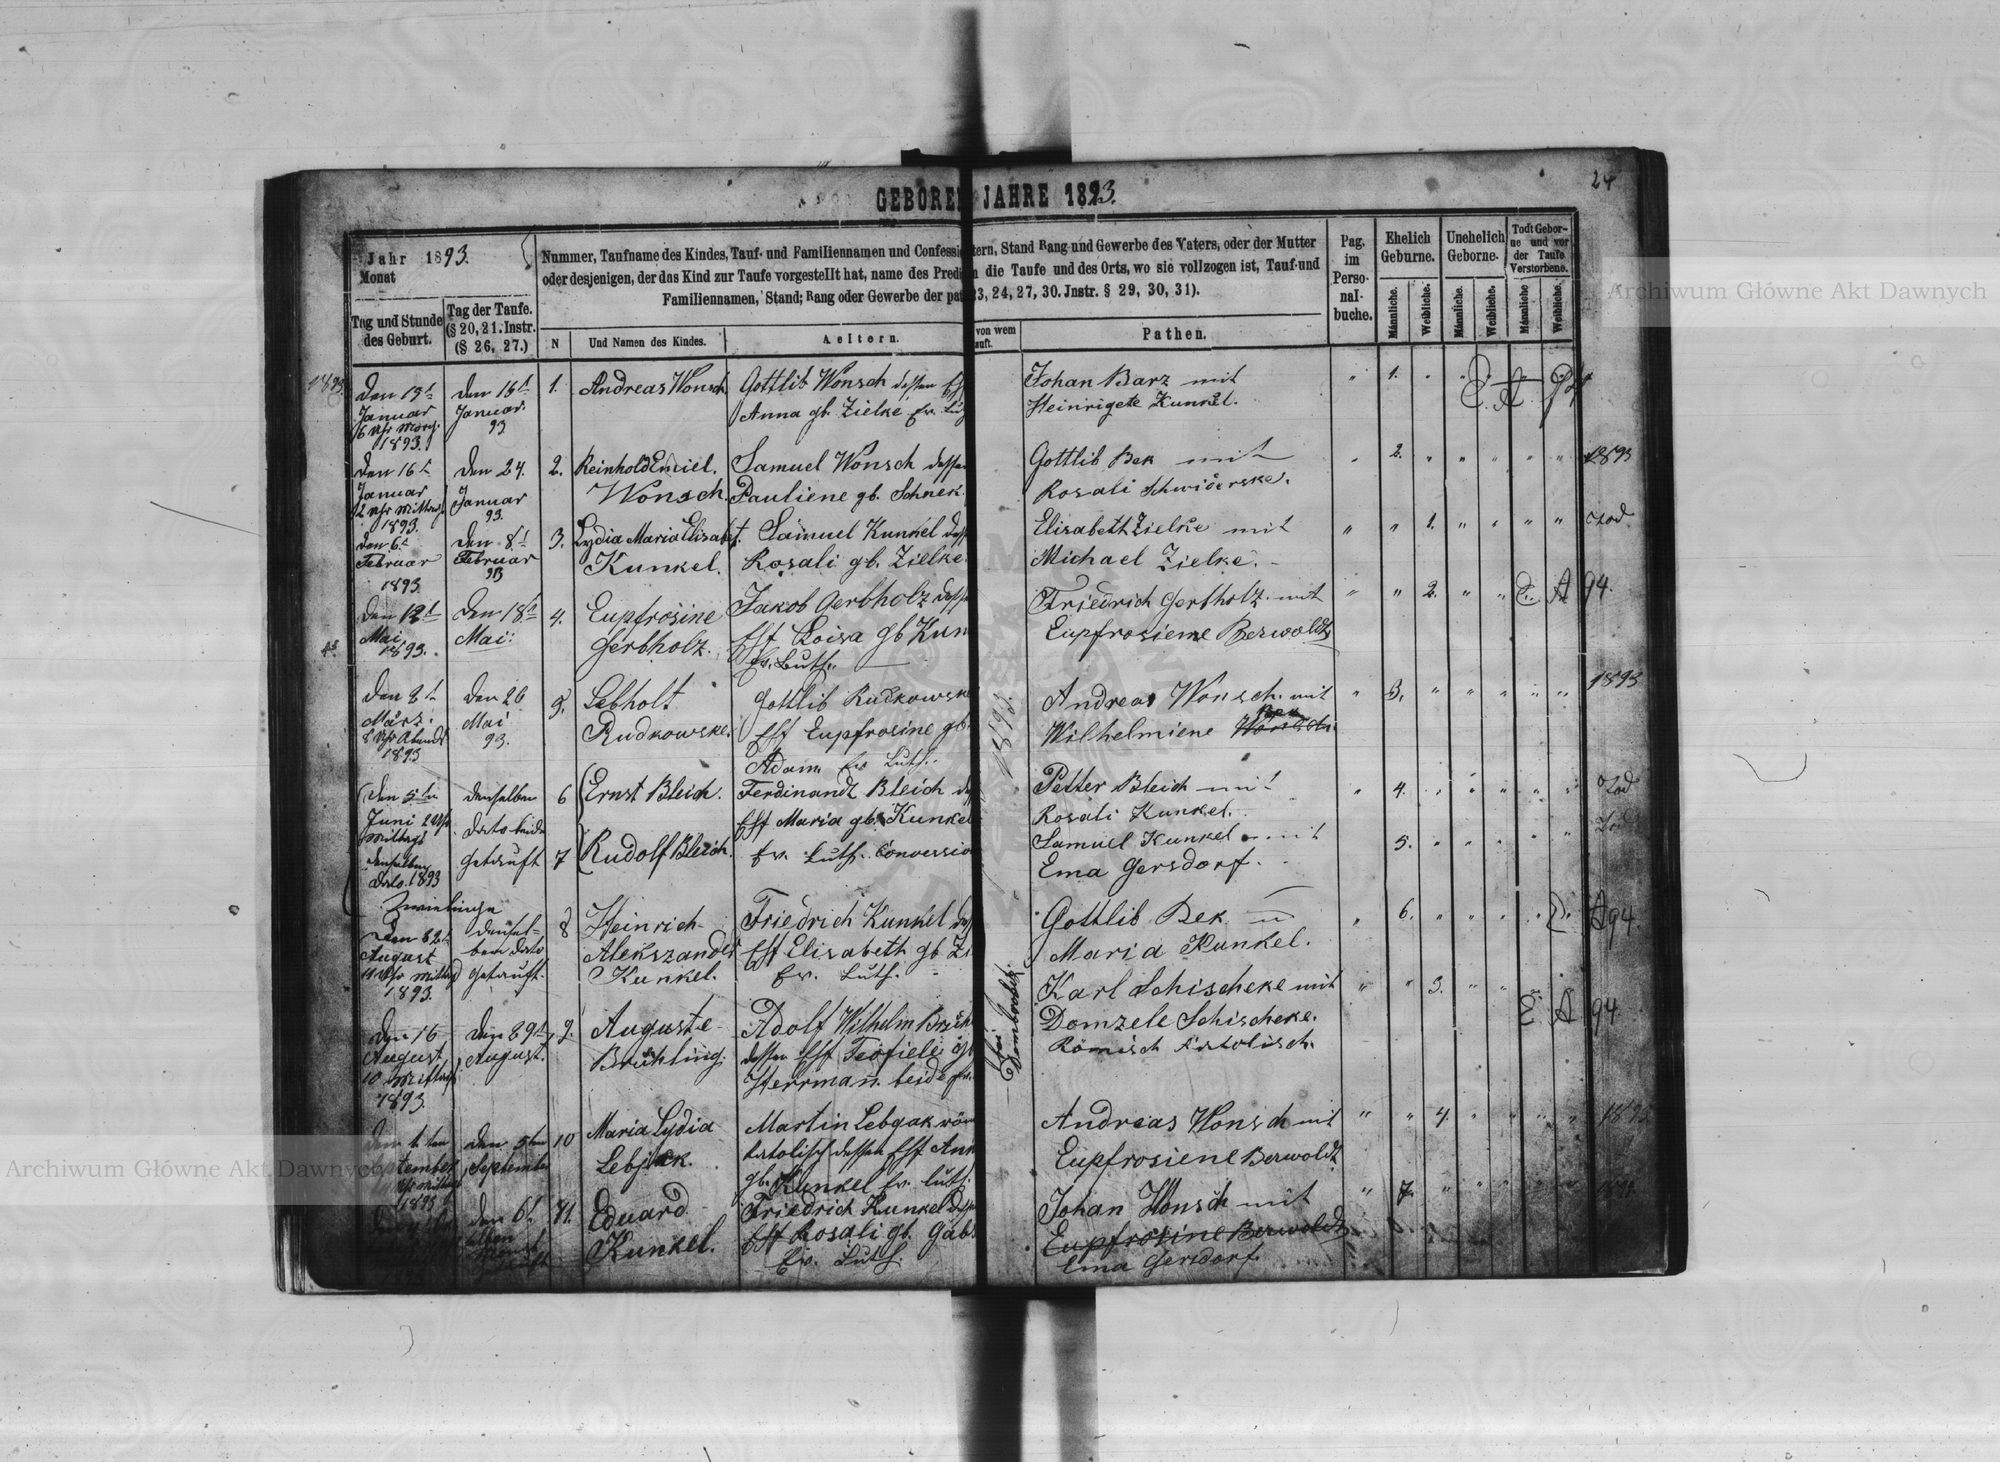 24
GEBOREN JAHRE 1893.
Jahr 1893.
Monat
Tag und Stunde
des Geburt.
Tag der Taufe.
(§ 20, 21. Instr.
(§ 26, 27.)
Nummer, Taufname des Kindes, Tauf- und Familiennamen und Confessi tern, Stand Rang und Gewerbe des Vaters, oder der Mutter
oder desjenigen, der das Kind zur Taufe vorgestellt hat, name des Predi n die Taufe und des Orts, wo sie vollzogen ist, Tauf-und
Familiennamen, Stand; Rang oder Gewerbe der pat 23, 24, 27, 30. Jnstr. § 29, 30, 31).
N
Und Namen des Kindes.
Aeltern.
von wem
auft.
Pathen.
Pag.
im
Perso-
nal-
buche.
Ehelich
Geburne.
Männliche.
Weibliche.
Unehelich
Geborne.
Männliche.
Weibliche.
Todt Gebor-
ne und vor
der Taufe
Verstorbene.
Männliche
Weibliche.
Den 13t
Januar
6 Uhr Morg.
1893.
Den 16t
Januar.
93
1. Andreas Wonsch.
Gottlib Wonsch dessen
Anna gb. Zielke, Ev.
Johan Barz mit
Heinrigete Kunkel.
1.
Den 16t
Januar
1893.
Den 24.
Januar
93.
2. Reinhold Emiel.
Wonsch.
Samuel Wonsch dessen
Pauliene gb. Schnek.
Gottlib Bek mit
Rosali
2.
1893
Den 6t
Februar
1893.
Den 8t
Februar
93
3. Lydia Maria Elisabet.
Kunkel.
Samuel Kunkel
Rosali gb. Zielke.
Elisabeth Zielke mit
Michael Zielke.
1.
Tod
Den
Mai
1893.
Den 18t
Mai:
4. Eupfrosine
Gerbholz.
Jakob Gerbholz
Eff Loisa gb Kun
Ev. Luth.
Friedrich Gerbholz mit
Eupfrosiene Berwoldt
2.
94.
Den 2t
März.
8 Uhr Abends
1893
Den 26
Mai
93.
5. Lebholt
Rudkowske.
Gottlib Rudkowsk
Eff Eupfrosine gb.
Adam Ev Luth.
Andreas Wonsch. mit
Wilhelmiene
3.
1893
Den 5ten
Juni 2 Uhr
Mittags
denselben
Dato. 1893
Zwielinge
denselben
Dato beide
Getauft
6 Ernst Bleich.
7 Rudolf Bleich.
Ferdinandt Bleich
Eff Maria gb. Kunkel
Ev. Luth. Convessio
Petter Bleich mit
Rosali Kunkel.
Samuel Kunkel mit
Ema Gersdorf.
4.
5.
Tod
Tod
August
11 Uhr Mittag
1893.
densel-
ben Dato
Getauft.
8 Heinrich
Alekszander
Kunkel.
Friedrich Kunkel
Eff Elisabeth gb Zi
Ev. Luth.
Gottlib Bek
Maria Kunkel.
6.
94.
Den 16
August
10 Mittags
1893.
August.
9. Auguste
Brühling.
Adolf Wilhelm Brüh
dessen Eff Teofiele
Herrmann beide Ev.
Karl Schischeke mit
Domzele Schischeke.
Römisch Katolisch.
3.
94
1893
September
Den 5ten
September
10 Maria Lydia
Lebjak.
Martin Lebgak röm
katolisch dessen Eff Ann
gb. Kunkel Ev. Luth.
Andreas Wonsch mit
Eupfrosiene Berwoldt
4.
Den 6t
11. Eduard
Kunkel.
Friedrich Kunkel
Eff Rosali gb. Gab
Ev. Luth.
Johan Wonsch mit
Eupfrosine Berwoldt
Ema Gersdorf.
7.
Archiwum Główne Akt Dawnych
Archiwum Główne Akt Dawnych